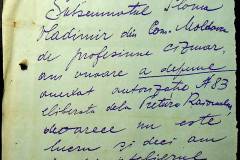 Subsemnatul Ilona
Vladimir din Com. Moldova
de profesiune cizmar,
am onoare a depune
anexat autorizația № 83
eliberată dela Pretura
deoarece nu este
lucru și deci am